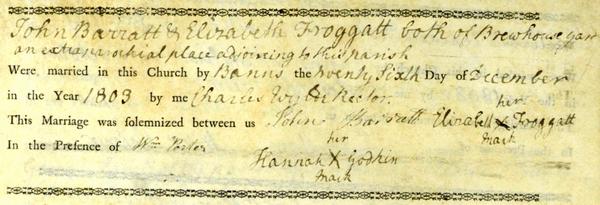 John Barratt & Elizabeth Froggatt both of Brewhouse yard
an extraparochial place adjoining to this parish
Were married in this Church by Banns the twenty Sixth Day of December
in the Year 1803 by me Charles Wylde Rector.
This Marriage was solemnized between us John Barratt Elizabeth her X Froggatt
mark
In the Presence of Wm Porter
her
Hannah X Godkin
mark